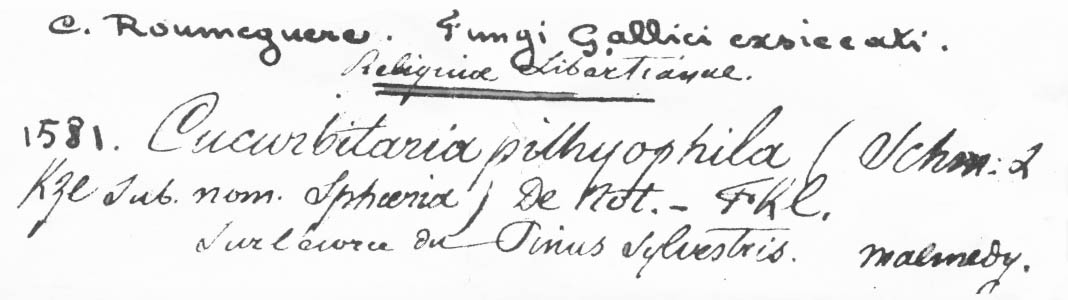 C. Roumeguere. Fungi Gallici exsiccati.
Reliquiae Libertianae.
1581. Cucurbitaria pithyophila (Schm: &
Kze sub. nom. Sphæria) De Not. - FKl.
Sur l'écorce du Pinus sylvestris. Malmedy.